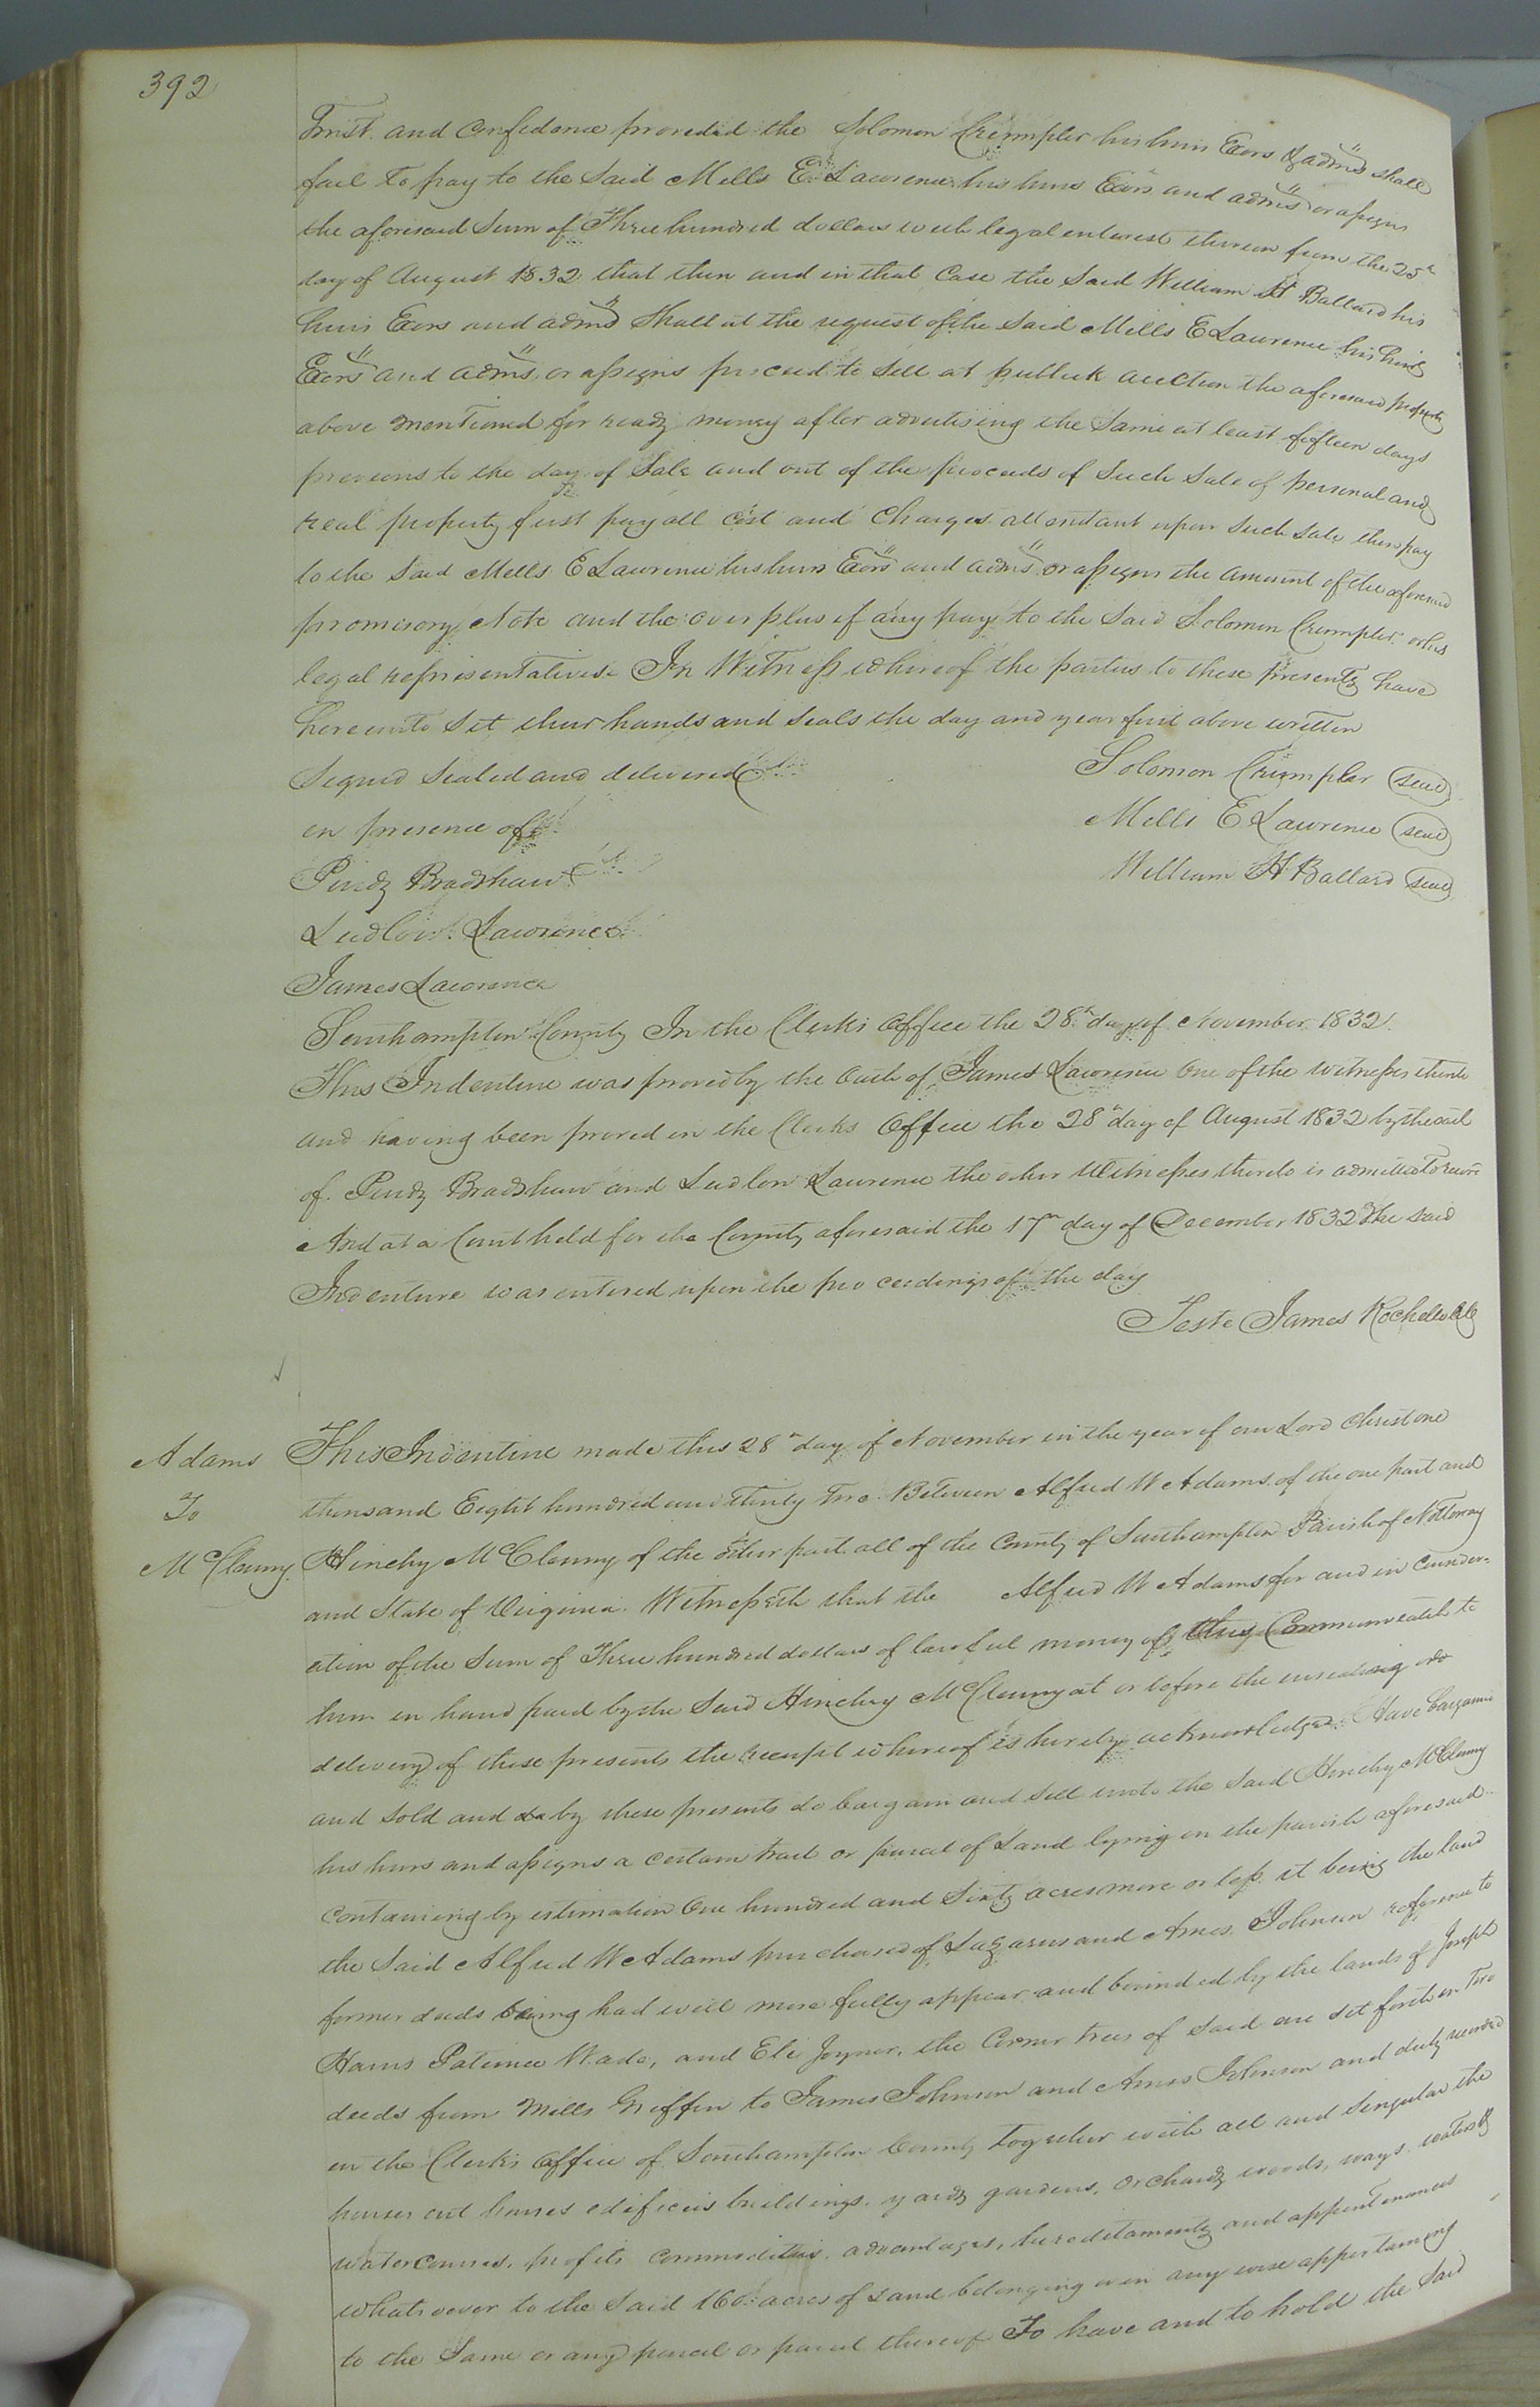 392
Trust and Confidence provided the Solomon Crumpler his heirs Exors & admrs shall
fail to pay to the Said Mills E Lawrence his heirs Exors and admrs or assigns
the aforesaid Sum of Three hundred dollars with legal interest thereon from the 25th
day of August 1832 that then and in that Case the Said William H Ballard his
heirs Exors and admrs Shall at the request of the Said Mills E Lawrence his heirs
Exors and admrs or assigns proceed to Sell at publick auction the aforesaid property
above mentioned for ready money after advertising the Same at least fifteen days
previous to the day of Sale and out of the proceeds of Such Sale of personal and
real property first pay all Cost and Charges attendant upon Such Sale then pay
to the Said Mills E Lawrence his heirs Exors and admrs or assigns the amount of the aforesaid
promisory Note and the over plus if any pay to the Said Solomon Crumpler or his
legal representatives In Witness whereof the parties to these presents have
hereunto Set their hands and Seals the day and year first above written
Signed Sealed and delivered Solomon Crumpler seal
in presence of Mills E Lawrence seal
Pindy Bradshaw William H Ballard seal
Ludlow Lawrence
James Lawrence
Southampton County In the Clerks Office the 28th day of November 1832.
This Indenture was proved by the Oath of James Lawrence One of the witnesses thereto
and having been proved in the Clerks Office the 28th day of August 1832 by the oath
of Pindy Bradshaw and Ludlow Lawrence the other Witnesses thereto is admitted to record
And at a Court held for the County aforesaid the 17th day of December 1832 The Said
Indenture was entered upon the proceedings of the day
Teste James Rochelle Clk
Adams
To
McClenny
This Indenture made this 28th day of November in the year of our Lord Christ one
thousand Eight hundred and thirty Two Between Alfred W Adams of the one part and
Hinchy McClenny of the other part all of the County of Southampton Parish of Nottoway
and State of Virginia. Witnesseth that the Alfred W Adams for and in Consider-
ation of the Sum of Three hundred dollars of lawful money of this Commonwealth to
him in hand paid by the Said Hinchy McClenny at or before the ensealing and
delivery of these presents the receipt whereof is hereby acknowledged Have bargained
and Sold and do by these presents do bargain and Sell unto the Said Hinchy McClenny
his heirs and assigns a certain tract or parcel of Land lying in the parish aforesaid
Containing by estimation One hundred and Sixty acres more or less it being the land
the Said Alfred W Adams purchased of Lazarus and Amos Johnson reference to
former deeds being had will more fully appear and bounded by the lands of Joseph
Harris Patience Wade, and Eli Joyner, the Corner trees of Said are set forth in Two
deeds from Mills Griffin to James Johnson and Amos Johnson and duly recorded
in the Clerks Office of Southampton County together with all and Singular the
houses out houses edificeis buildings, yards gardens, Orchards woods, ways, waters &
watercourses, profits Commodities, advantages, hereditaments and appurtenances
whatsoever to the Said 160 acres of Land belonging or in any wise appertaining
to the Same or any parcel or parcel thereof To have and to hold the Said